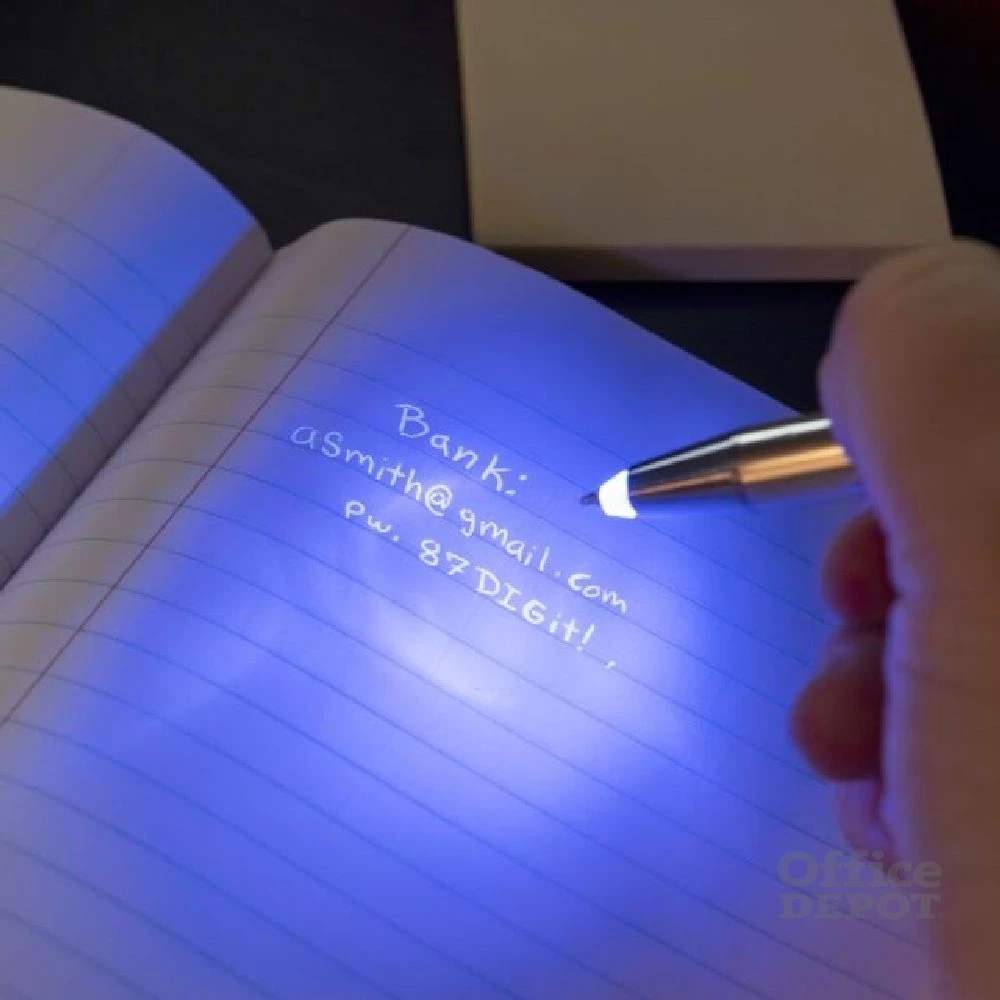 Bank:
aSmith@gmail.com
pw. 87DIGit!,
Office
DEPOT